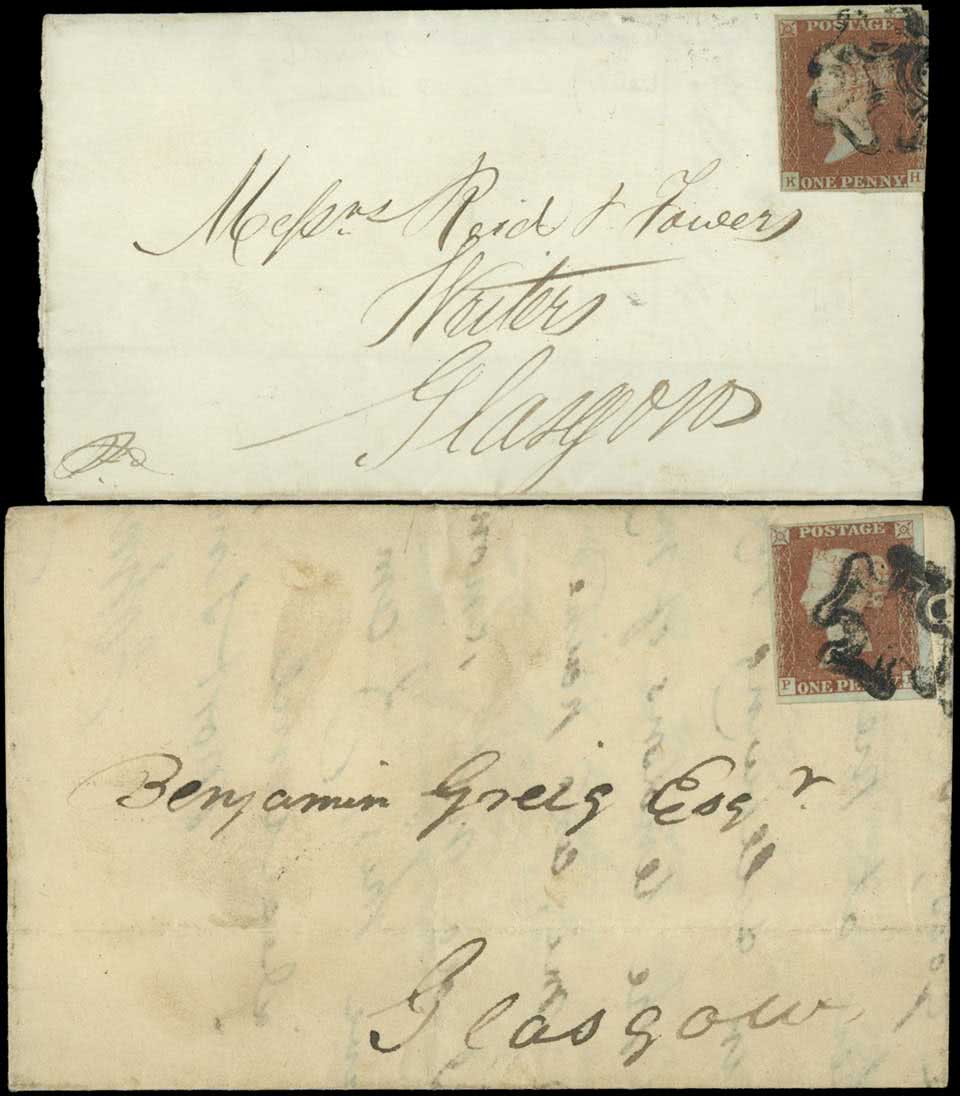 POSTAGE
K ONE PENNY H
Messrs Reid & Towers
Writers
Glasgow
POSTAGE
P ONE PENNY
Benjamin Greig Esqr.
Glasgow